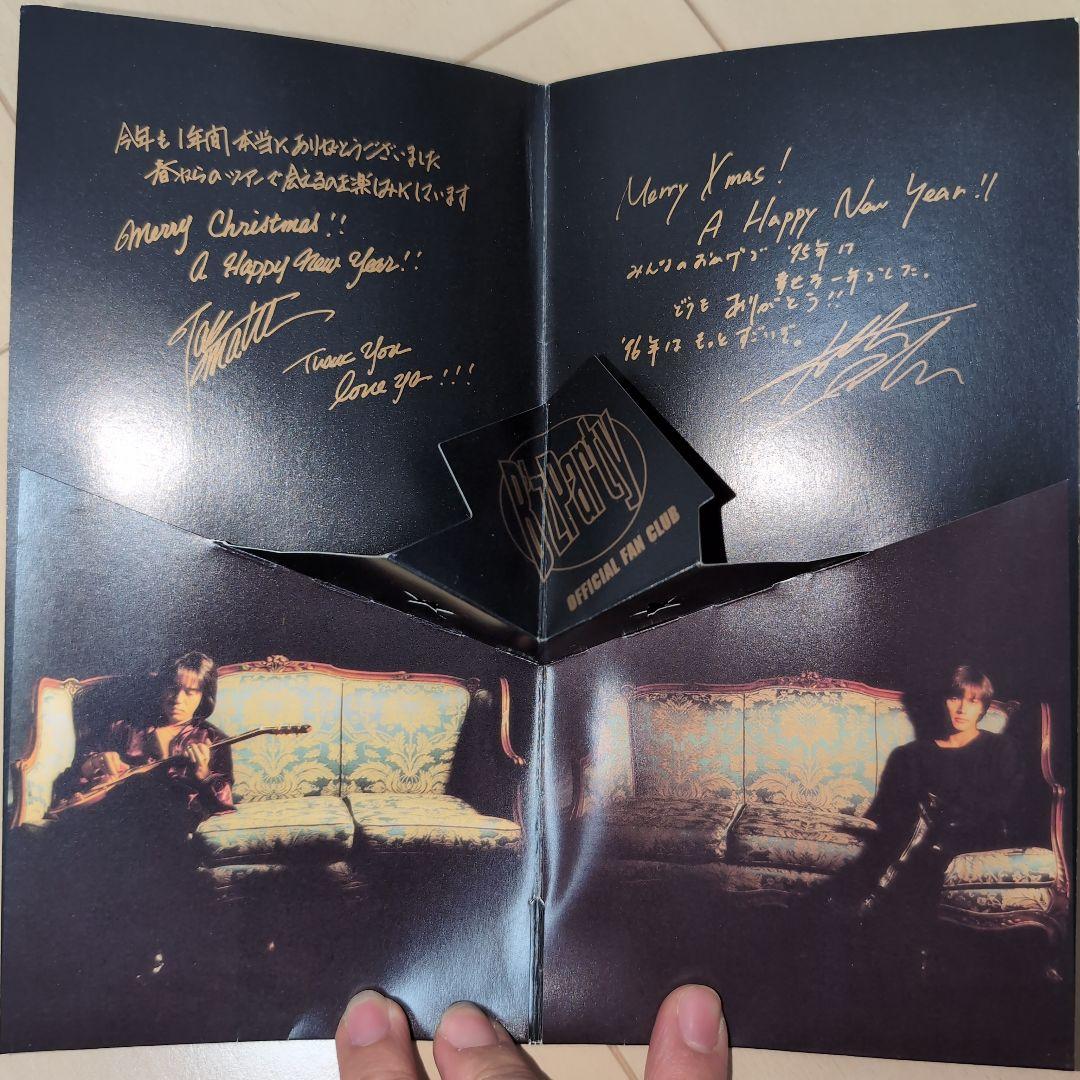 今年も1年間本当にありがとうございました
春からのツアーで会えるのを楽しみにしています
Merry Christmas!!
A Happy New Year!!
Tak Matsu
Thank You
love ya!!!
Merry Xmas!
A Happy New Year!!
みんなのおかげで '95年は
幸せな一年でした。
どうも ありがとう!!
'96年は もっと すごいぞ。
B'z Party
OFFICIAL FAN CLUB